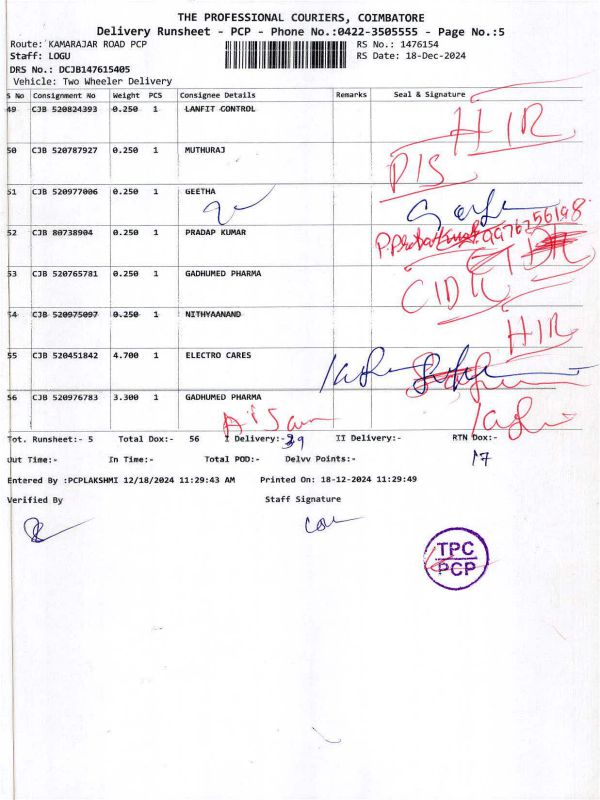 THE PROFESSIONAL COURIERS, COIMBATORE
Delivery Runsheet - PCP - Phone No.:0422-3505555 - Page No.:5
Route: KAMARAJAR ROAD PCP RS No.: 1476154
Staff: LOGU RS Date: 18-Dec-2024
DRS No.: DCJB147615405
Vehicle: Two Wheeler Delivery
S No Consignment No Weight PCS Consignee Details Remarks Seal & Signature
49 CJB 520824393 0.250 1 LANFIT CONTROL HIR
50 CJB 520787927 0.250 1 MUTHURAJ DIS
51 CJB 520977006 0.250 1 GEETHA
52 CJB 80738904 0.250 1 PRADAP KUMAR 9976256198
53 CJB 520765781 0.250 1 GADHUMED PHARMA
54 CJB 520975097 0.250 1 NITHYAANAND HIR
55 CJB 520451842 4.700 1 ELECTRO CARES
56 CJB 520976783 3.300 1 GADHUMED PHARMA
Tot. Runsheet:- 5 Total Dox:- 56 I Delivery:- 39 II Delivery:- RTN Dox:- 17
Out Time:- In Time:- Total POD:- Delvv Points:-
Entered By :PCPLAKSHMI 12/18/2024 11:29:43 AM Printed On: 18-12-2024 11:29:49
Verified By Staff Signature
TPC
PCP